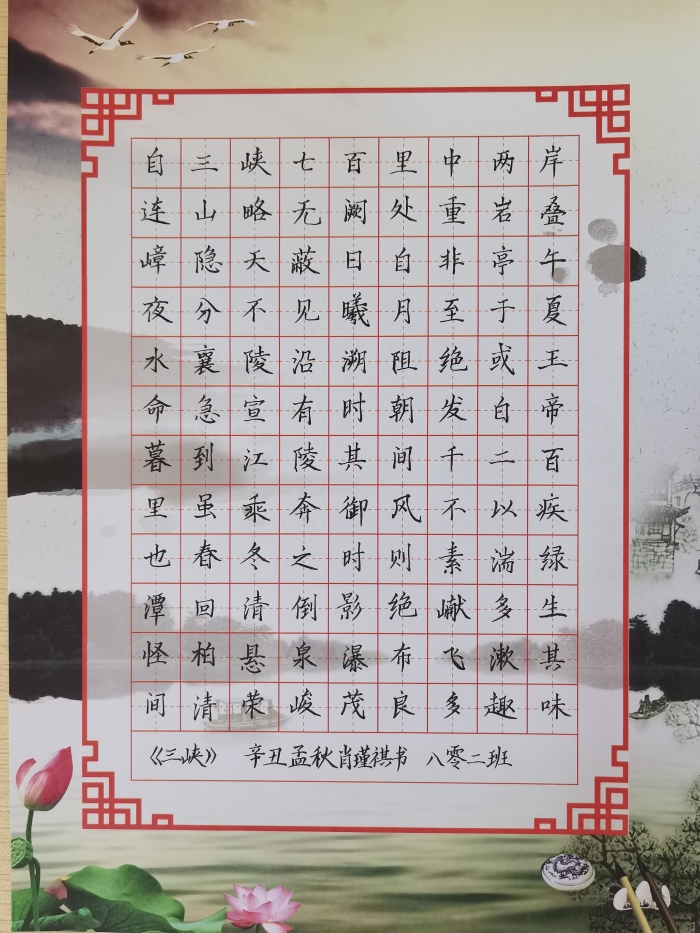 自三峡七百里中两岸
连山略无阙处重岩叠
嶂隐天蔽日自非亭午
夜分不见曦月至于夏
水襄陵沿溯阻绝或王
命急宣有时朝发白帝
暮到江陵其间千二百
里虽乘奔御风不以疾
也春冬之时则素湍绿
潭回清倒影绝巘多生
怪柏悬泉瀑布飞漱其
间清荣峻茂良多趣味
《三峡》 辛丑孟秋肖瑾祺书 八零二班